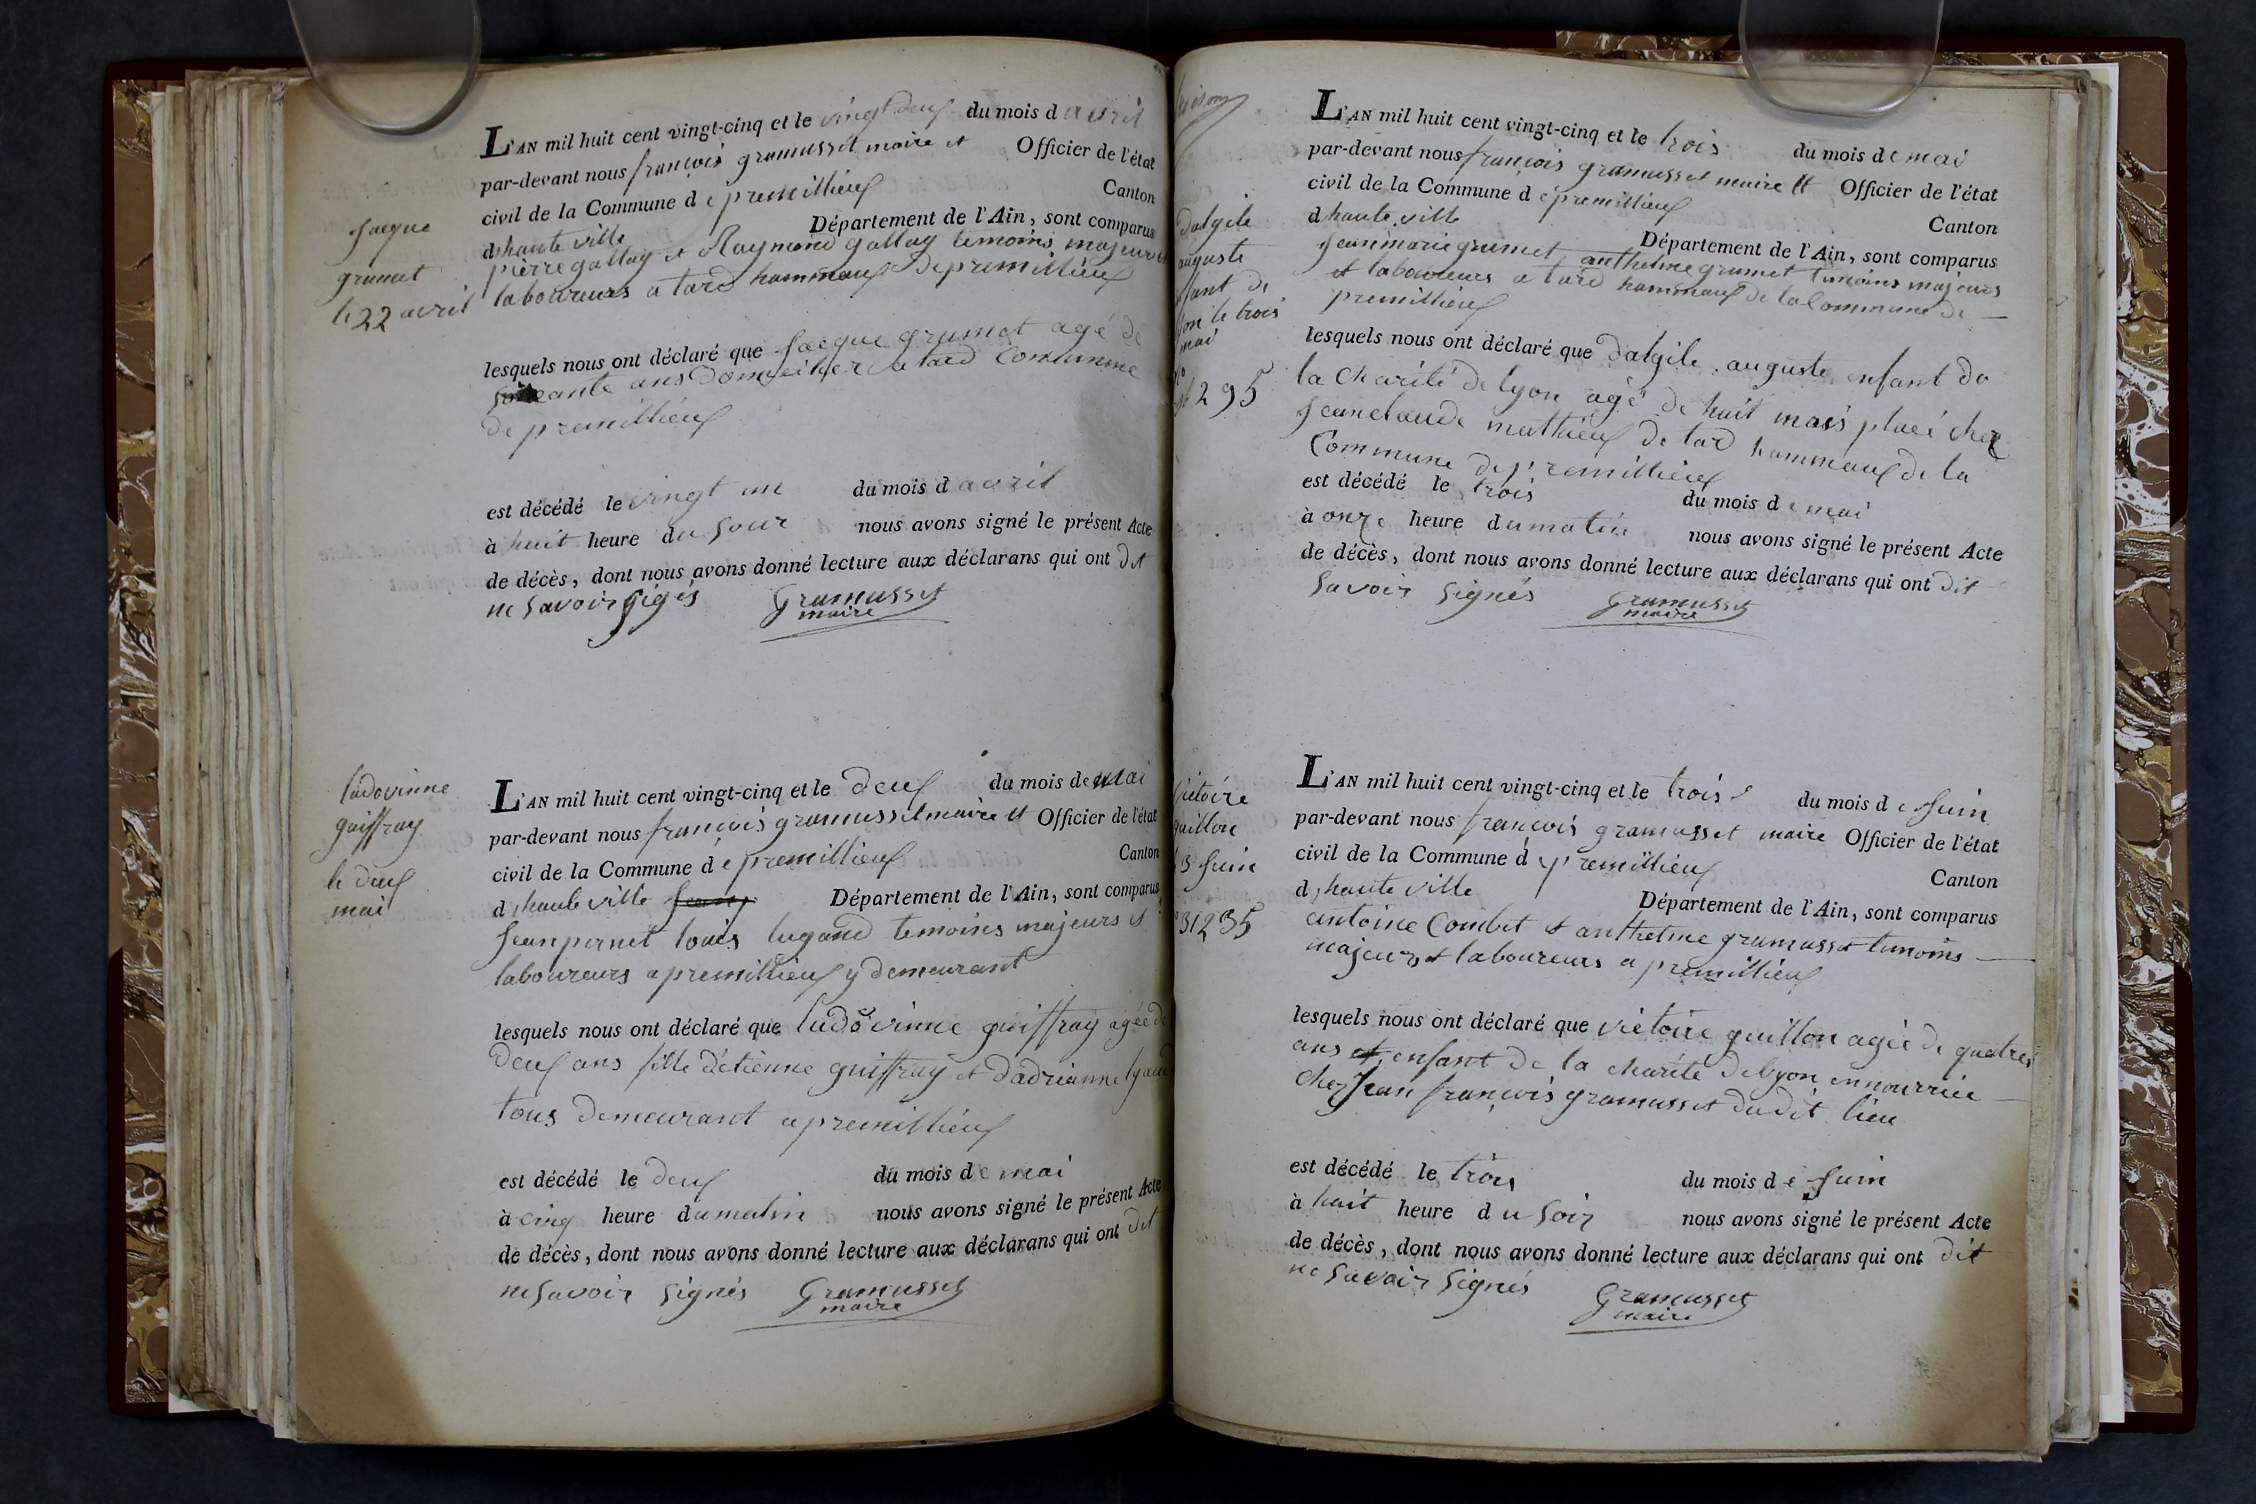 Jacque
grumet
le 22 avril
L'AN mil huit cent vingt-cinq et le vingt deux du mois d avril
par-devant nous françois gramusset maire et Officier de l'état
civil de la Commune d e premillieux Canton
d hauteville Département de l'Ain, sont comparus
pierre gallay et Raymond gallay temoins majeurs et
laboureurs a tard hammeaux de premillieux
lesquels nous ont déclaré que Jacque grumet agé de
soixante ans domicilier a tard Commune
de premillieux
est décédé le vingt un du mois d avril
à huit heure du soir nous avons signé le présent Acte
de décès, dont nous avons donné lecture aux déclarans qui ont dit
ne savoir signés Gramusset
maire
ludovinne
guiffray
le deux
mai
L'AN mil huit cent vingt-cinq et le deux du mois de mai
par-devant nous françois gramusset maire et Officier de l'état
civil de la Commune d e premillieux Canton
d hauteville Département de l'Ain, sont comparus
Jean pernet louis lugand temoins majeurs et
laboureurs a premillieux y demeurant
lesquels nous ont déclaré que ludovinne guiffray agée de
deux ans fille d'étienne guiffray et d'adrianne
tous demeurant a premillieux
est décédé le deux du mois de mai
à cinq heure du matin nous avons signé le présent Acte
de décès, dont nous avons donné lecture aux déclarans qui ont dit
ne savoir signés Gramusset
maire
dalgile
auguste
de
le trois
mai
295
L'AN mil huit cent vingt-cinq et le trois du mois de mai
par-devant nous françois gramusset maire et Officier de l'état
civil de la Commune d e premillieux Canton
d hauteville Département de l'Ain, sont comparus
Jeanmarie grumet anthelme grumet temoins majeurs
et laboureurs a tard hammeaux de la Commune de
premillieux
lesquels nous ont déclaré que dalgile auguste enfant de
la charité de lyon agé de huit mois placé chez
Jeanclaude mathieux de tard hammeaux de la
Commune de premillieux
est décédé le trois du mois de mai
à onze heure du matin nous avons signé le présent Acte
de décès, dont nous avons donné lecture aux déclarans qui ont dit
savoir signés Gramusset
maire
victoire
guillon
3 Juin
31235
L'AN mil huit cent vingt-cinq et le trois du mois de Juin
par-devant nous françois gramusset maire Officier de l'état
civil de la Commune d e premillieux Canton
d hauteville Département de l'Ain, sont comparus
antoine Combet et anthelme gramusset temoins
majeurs et laboureurs a premillieux
lesquels nous ont déclaré que victoire guillon agée de quatres
ans et enfant de la charité de lyon ennourrice
chez Jean françois gramusset dudit lieu
est décédé le trois du mois de Juin
à huit heure du soir nous avons signé le présent Acte
de décès, dont nous avons donné lecture aux déclarans qui ont dit
ne savoir signés Gramusset
maire